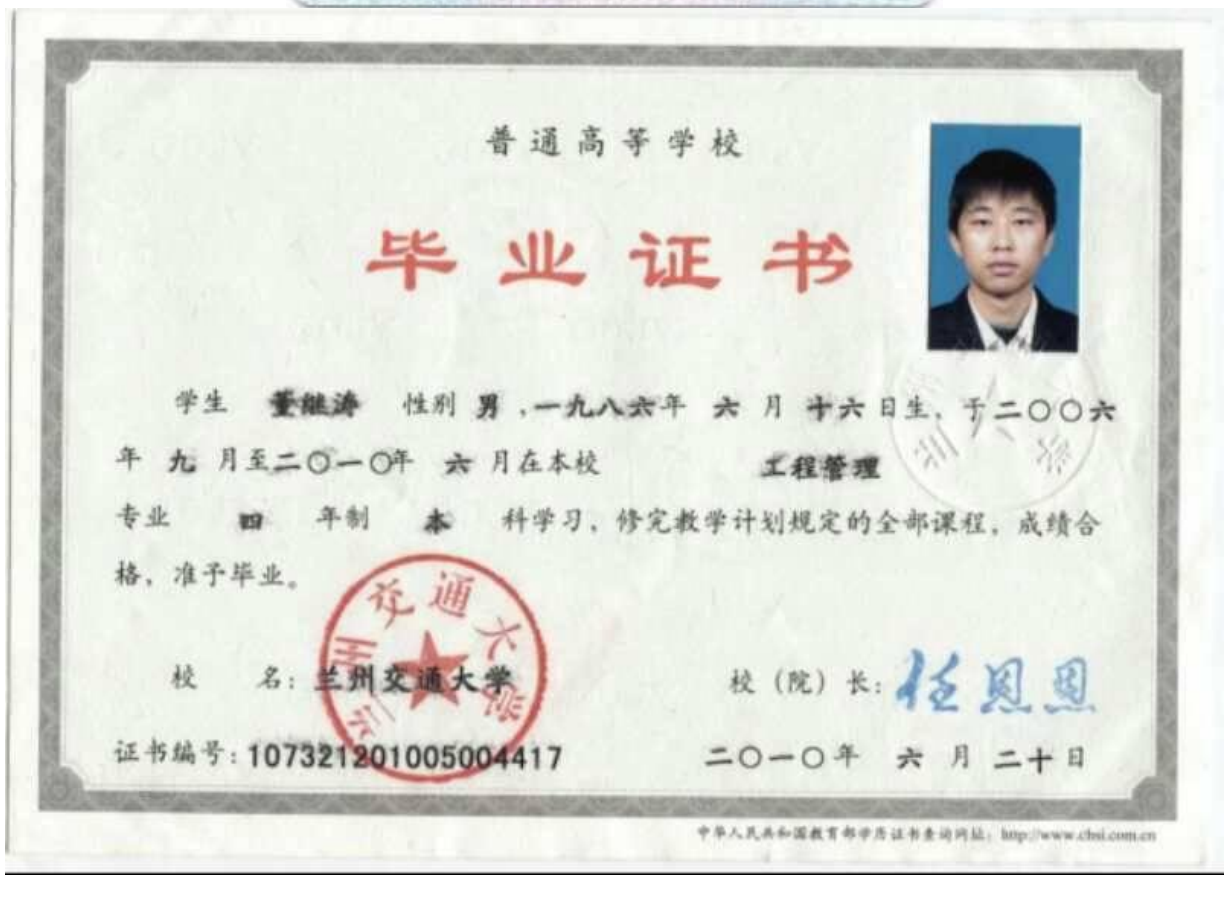 普通高等学校
毕业证书
学生 董继涛 性别 男,一九八六年 六 月 十六日生,于二〇〇六
年 九 月至二〇一〇年 六 月在本校 工程管理
专业 四 年制 本 科学习,修完教学计划规定的全部课程,成绩合
格,准予毕业。
兰州交通大学
校 名:兰州交通大学
校(院)长:任恩恩
证书编号:107321201005004417
二〇一〇年 六 月 二十日
中华人民共和国教育部学历证书查询网址:http://www.chsi.com.cn